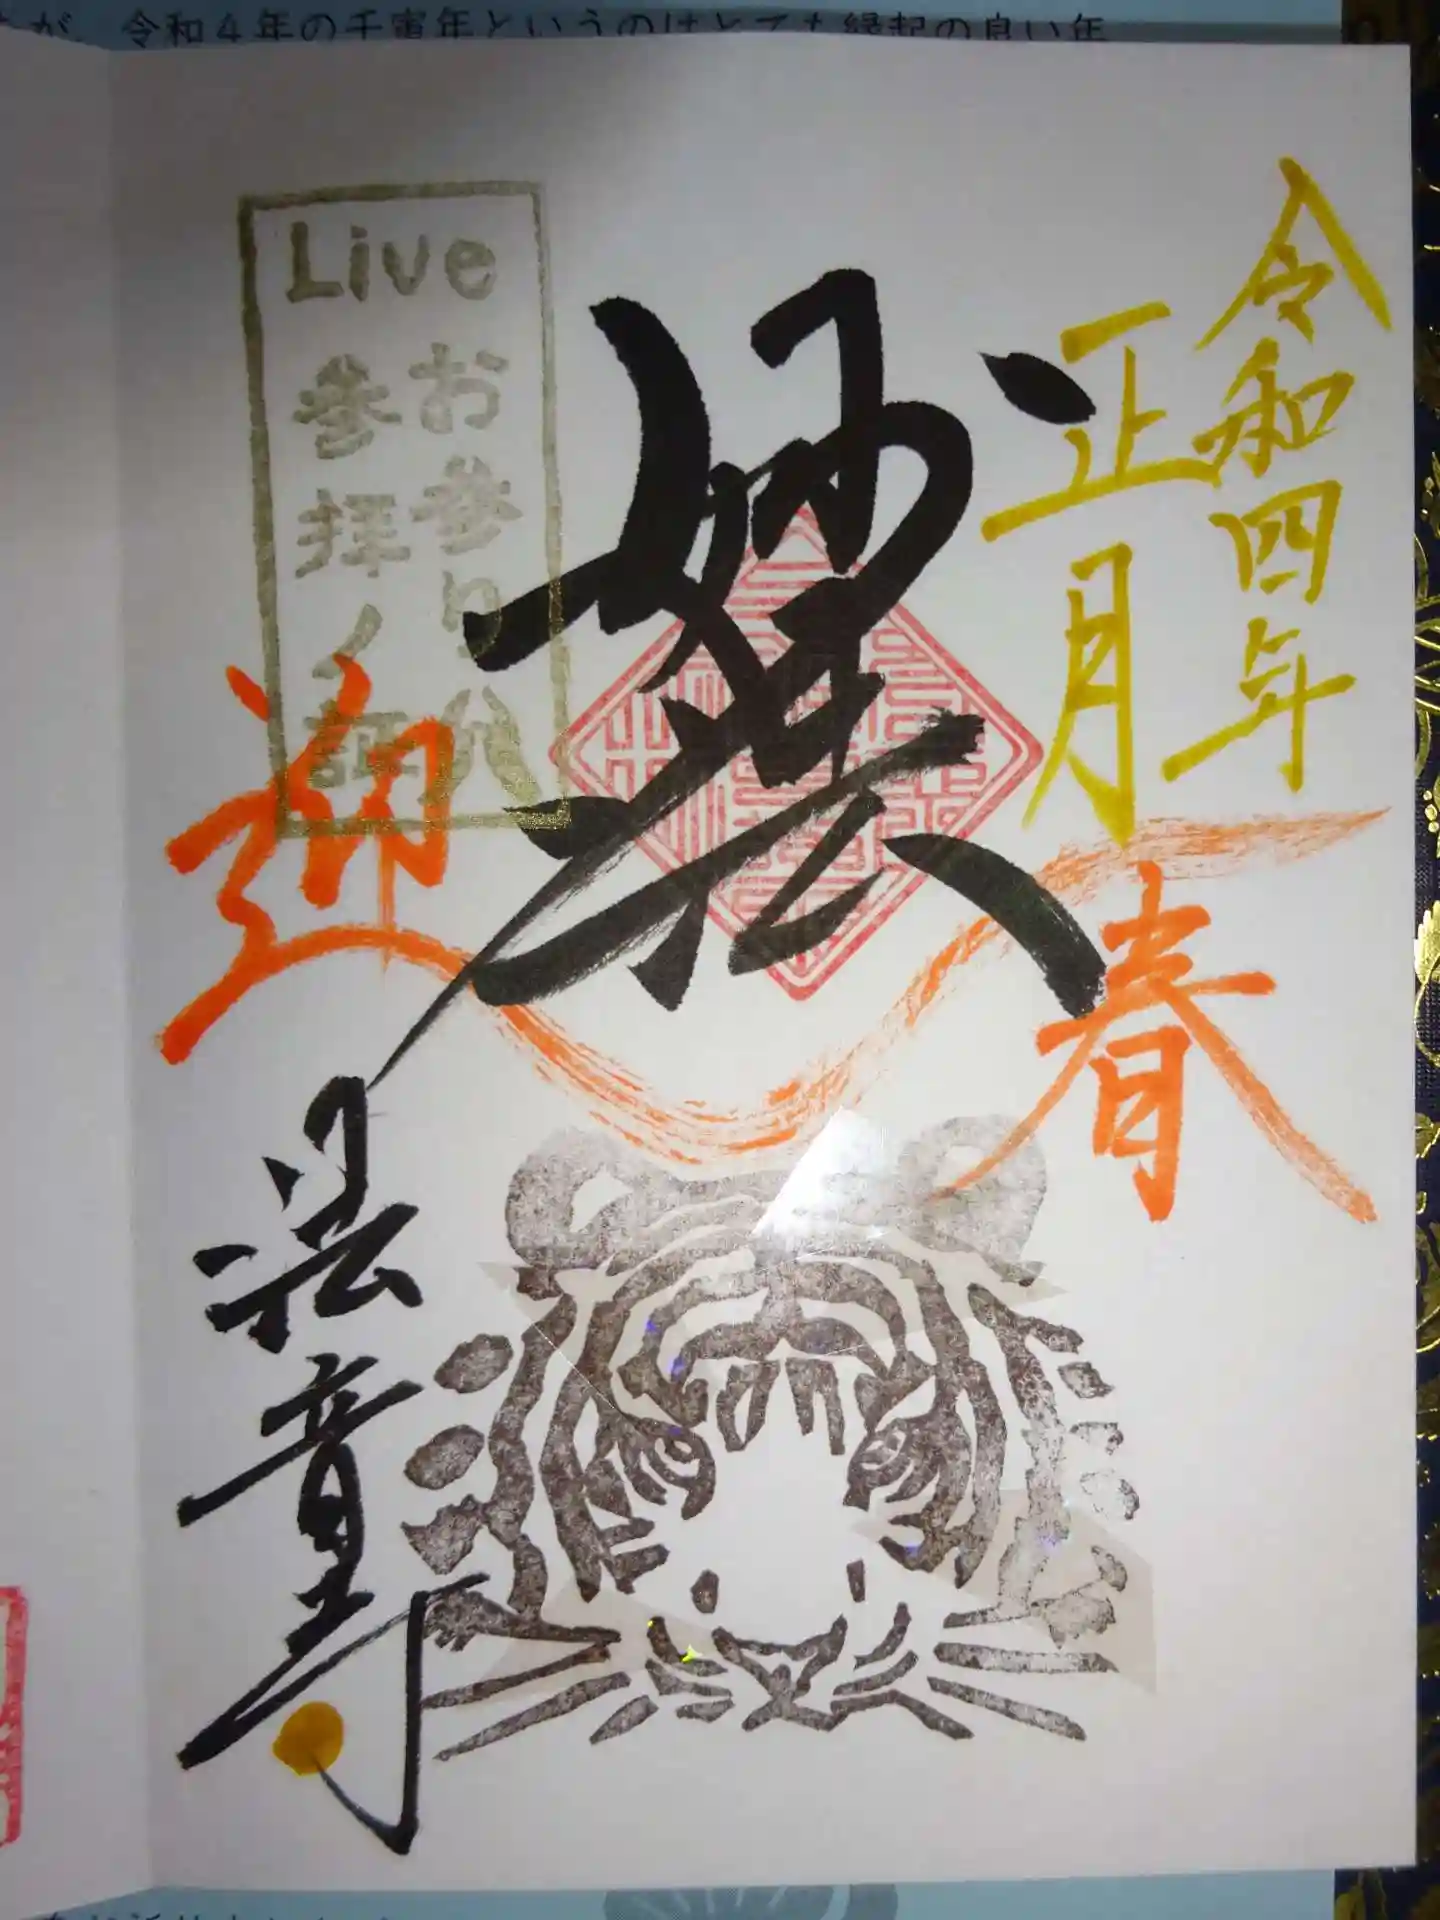 が、令和４年の壬寅年というのはとても縁起の良い年
令和四年
正月
春
妙法
Live
お参り
参拝ノ証
迎
法章寺